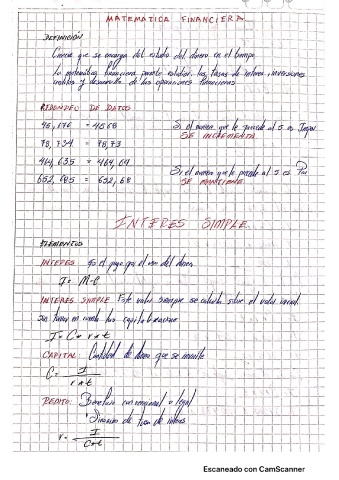 MATEMATICA FINANCIERA
DEFINICIÓN
Ciencia que se encarga del estudio del dinero en el tiempo
La matemática financiera permite establecer las tasas de interes, inversiones
y desarrollo de las operaciones financieras
REDONDEO DE DATOS
45,676 = 45,68 Si el numero que le precede al 5 es Impar
SE INCREMENTA
78,734 = 78,73
464,635 = 464,64 Si el numero que le precede al 5 es Par
SE MANTIENE
652,685 = 652,68
INTERES SIMPLE
ELEMENTOS
INTERES Es el pago por el uso del dinero
I = M-C
INTERES SIMPLE Este valor siempre se calcula sobre el valor inicial
sin tomar en cuenta las capitalizaciones
I = C * r * t
CAPITAL Cantidad de dinero que se invierte
C = I
r * t
REDITO: Beneficio convencional o legal
Sinonimo de tasa de interes
r = I
C * t
Escaneado con CamScanner